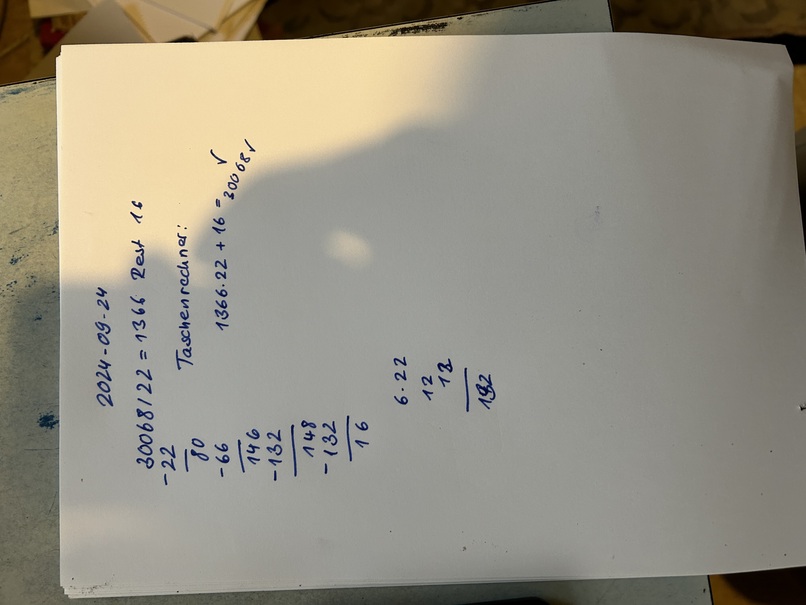 2024-09-24
30068/22 = 1366 Rest 16
-22
80
-66
146
-132
148
-132
16
Taschenrechner:
1366·22 + 16 = ✓
30068 ✓
6·22
12
12
132